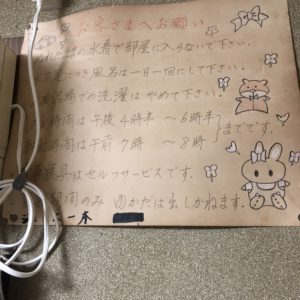 お客さまへお願い
の水着で部屋に入らないで下さい。
につき風呂は一日一回にして下さい。
場での洗濯はやめて下さい。
時間は午後4時半 〜6時半
時間は午前7時 〜8時
までです。
寝具はセルフサービスです。
期間のみ ゆかたは出しかねます。